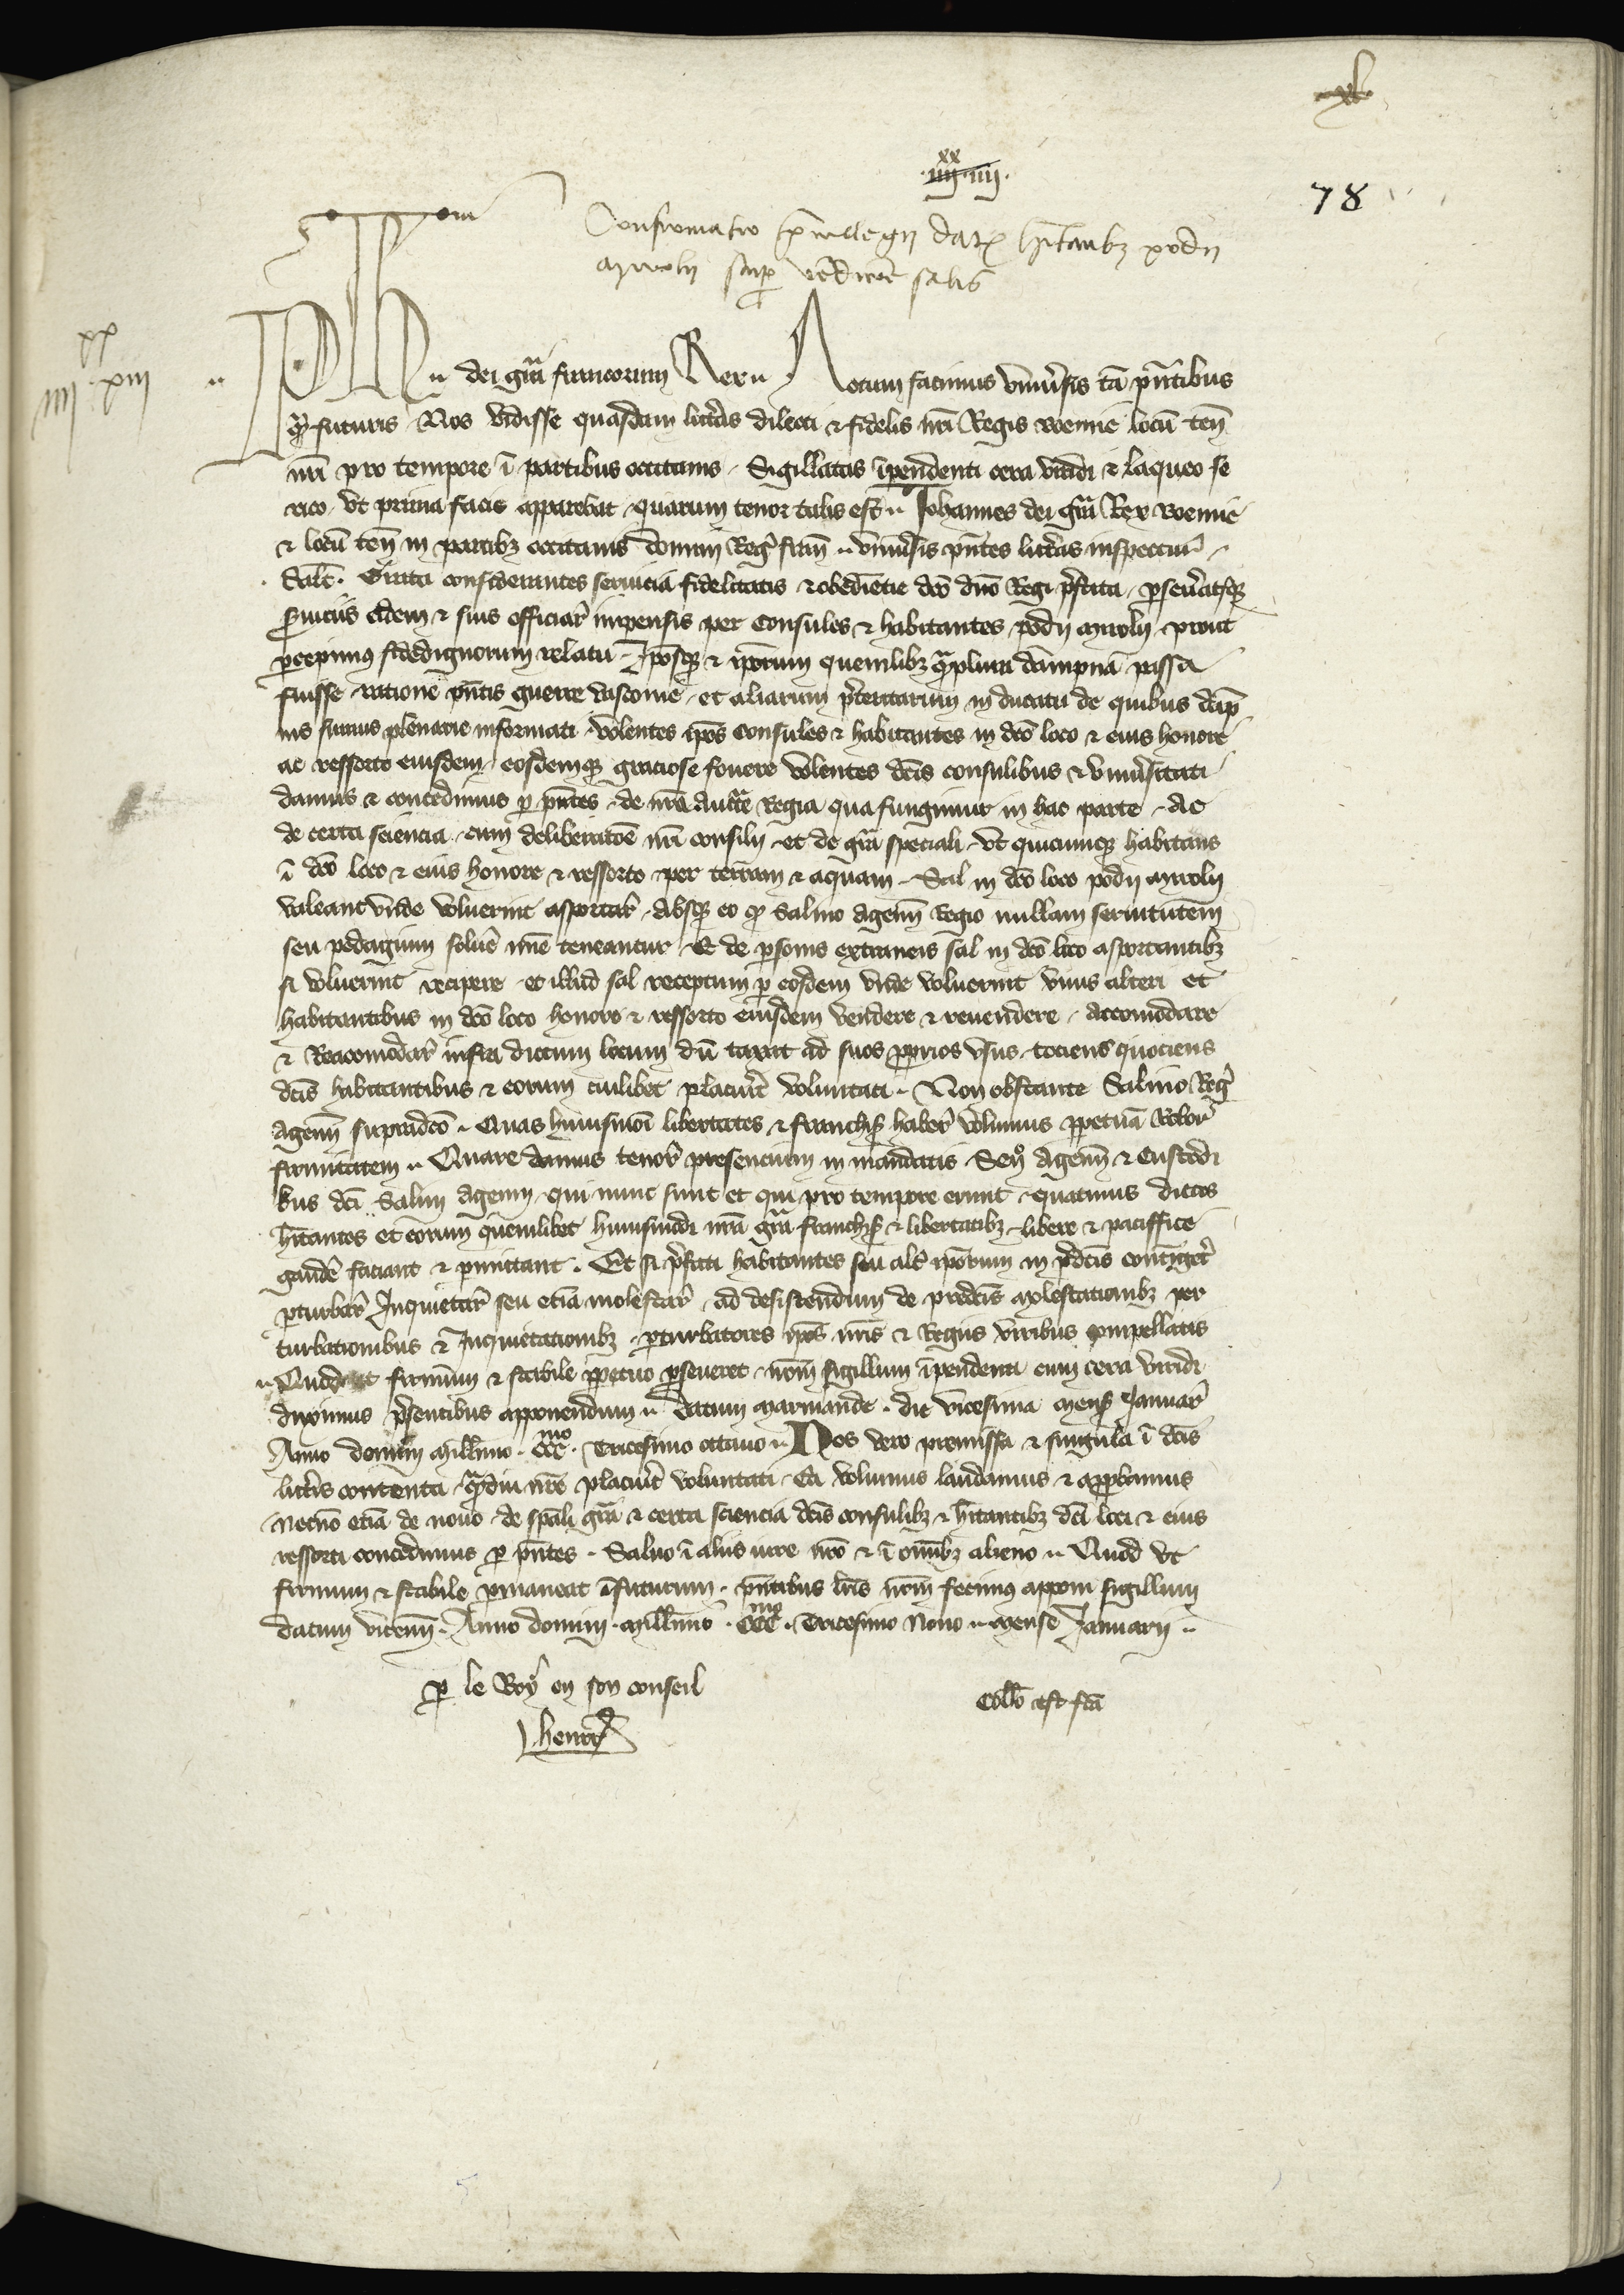 xl
iiii xx iiii
78
Confirmatio privilegii dat hitantibz podii
mirolii sup vendicoe salis
iiii xx xiii
Ph dei gra francorum Rex Notum facimus universis ta pntibus
q futuris Nos vidisse quasdam litteras dilecti & fidelis nri Regis boemie locu ten
nri pro tempore i partibus occitanis Sigillatas ipendenti cera viridi & laqueo se
rico ut prima facie apparebat quarum tenor talis est Johannes dei gra Rex boemie
& locu ten in partibz occitanis domini Reg franc universis pntes litteras inspectur
Salt Grata considerantes servicia fidelitatis & obediencie dco dno Regi pstita
serviciis eidem & suis officiar impensis per Consules & habitantes podii miroli prout
percepimus fidedignorum relatu Ipsosque & ipsorum quemlibz qplura dampna passa
fuisse ratione pntis guerre vasconie et aliarum pteritarum in ducatu de quibus damp
nis sumus plenarie informati volentes ipos Consules & habitantes in dco loco & eius honore
ac ressorto eiusdem eosdemque graciose fovere volentes dcis consulibus & universitati
damus & concedimus p pntes de nra Auctte Regia qua fungimur in hac parte Ac
de certa sciencia cum deliberatoe nri consilii et de gra speciali ut quicunque habitans
i dco loco & eius honore & ressorto per terram & aquam Sal in dco loco podii miroli
valeant unde voluerint asportar absque eo q Salino Agenn Regio nullam servitutem
seu pedagium solve mie teneantur Et de psonis extraneis sal in dco loco asportantibz
si voluerint recipere et illud sal receptum p eosdem unde voluerint unus alteri et
habitantibus in dco loco honore & ressorto eiusdem vendere & revendere Accomodare
& Reacomodar infra dictum locum du taxat ad suos pprios usus tociens quociens
dcis habitantibus & eorum cuilibet placuerit voluntati Non obstante Salino Reg
Agenn supradco Quas huiusmoi libertates & franchis haber volumus ppetua Robor
firmitatem Quare damus tenor presencium in mandatis Sen Agenn & Custodi
bus dci Salini Agenn qui nunc sunt et qui pro tempore erunt quatinus dictos
hitantes et eorum quemlibet huiusmodi nra gra franchis & libertatibz libere & paciffice
gaude faciant & pmittant Et si pfati habitantes seu alr ipsorum in pdcis contiget
pturbar Inquietar seu etia molestar ad desistendum de predcis molestationibz per
turbationibus & Inquietationibz pturbatores ipos nris & Regiis viribus compellatis
Quod ut firmum & stabile ppetuo pseveret nrm sigillum ipendenti cum cera viridi
duximus psentibus apponendum datum marmande die vicesima mens Januar
Anno domini millimo ccc mo Tricesimo octavo Nos vero premissa & singula i dcis
litteris contenta qdiu nre placuerit voluntati Ea volumus laudamus & approbamus
necno etia de novo de spali gra & certa sciencia dcis consulibz & hitantibz dci loci & eius
ressorti concedimus p pntes Salvo i aliis iure nro & i omibz alieno Quod ut
firmum & stabile pmaneat ifuturum pntibus lris nrm fecimus apponi sigillum
datum vicenn Anno domini millimo ccc mo Tricesimo Nono mense Januarii
p le Roy en son conseil
Collo est fca